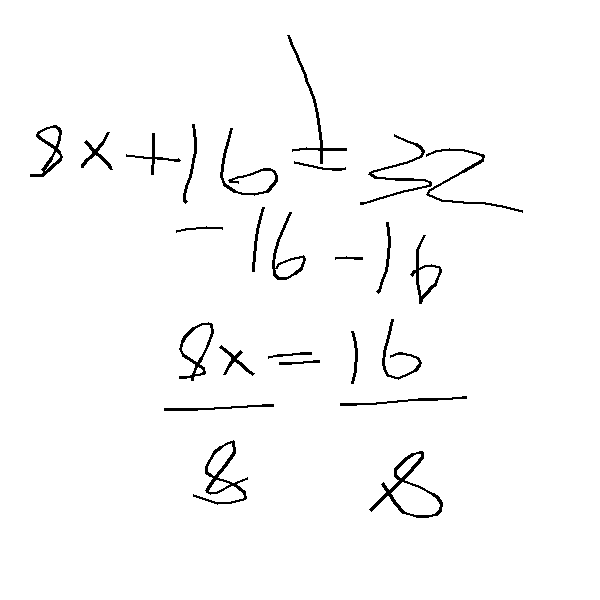 8x+16=32
-16 -16
8x=16
8 8